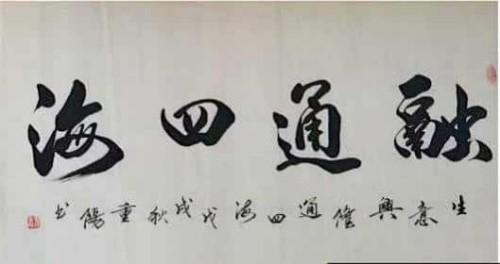 融通四海
生意兴隆通四海戊戌秋重陽书